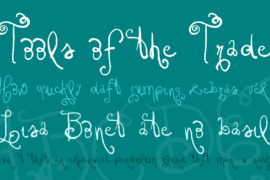 Tools of the Trade
How quickly daft jumping zebras vex
Lisa Bonet ate no basil